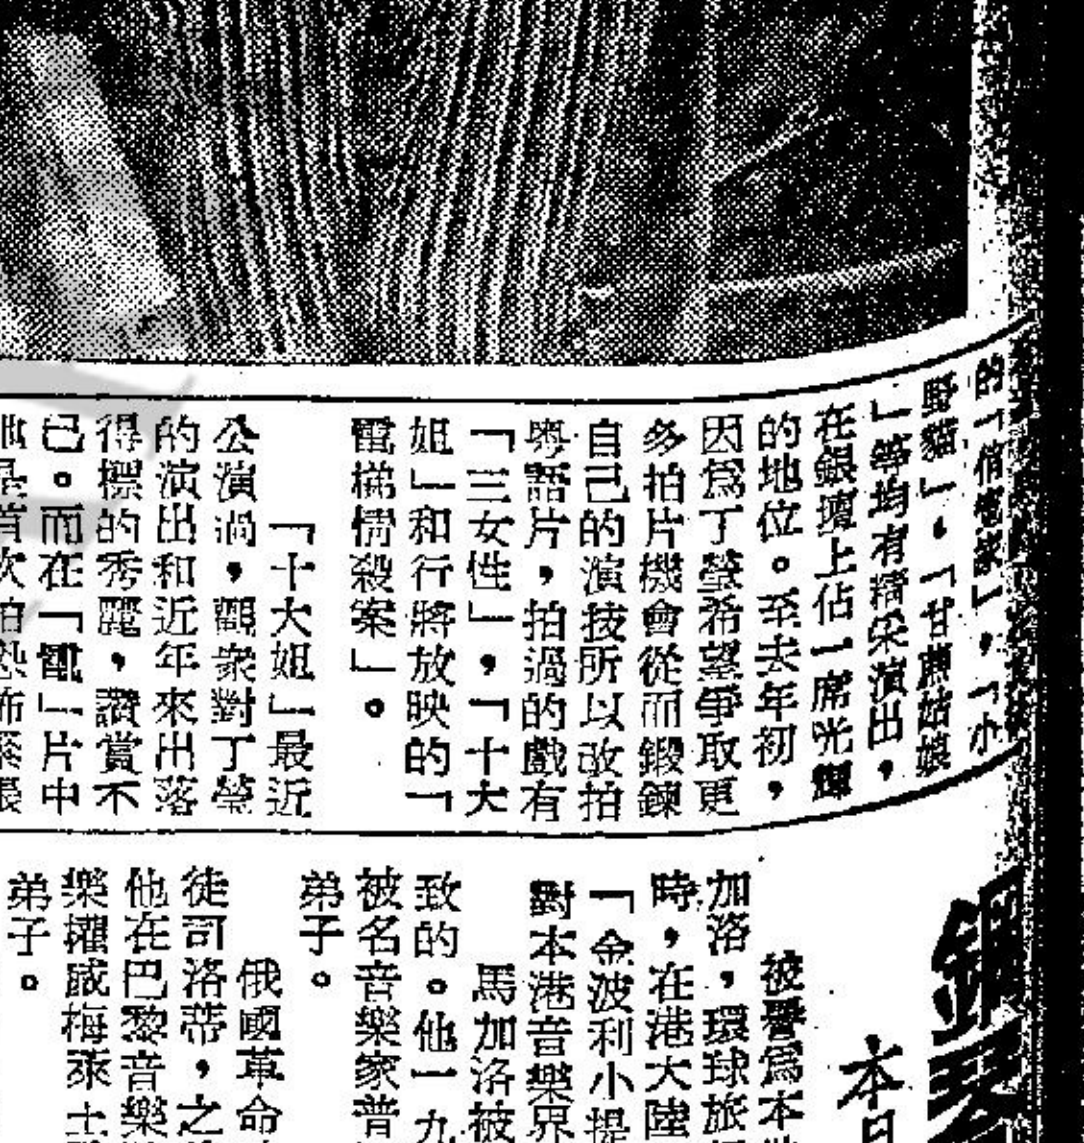 的「俏寃家」，「小
野貓」，「甘蔗姑娘
」等均有精采演出，
在銀壇上佔一席光輝
的地位。至去年初，
因爲丁瑩希望爭取更
多拍片機會從而鍛鍊
自己的演技所以改拍
粵語片，拍過的戲有
「三女性」，「十大
姐」和行將放映的「
電梯情殺案」。
「十大姐」最近
公演過，觀衆對丁瑩
的演出和近年來出落
得標的秀麗，讚賞不
已。而在「電」片中
首次拍恐怖緊張
鋼琴
本日
被譽爲本
加洛，環球旅
時，在港大陸
「金波利小提
對本港音樂界
馬加洛被
致的。他一九
被名音樂家普
弟子。
俄國革命
徒司洛蒂，之
他在巴黎音樂
樂權威梅萊士
弟子。